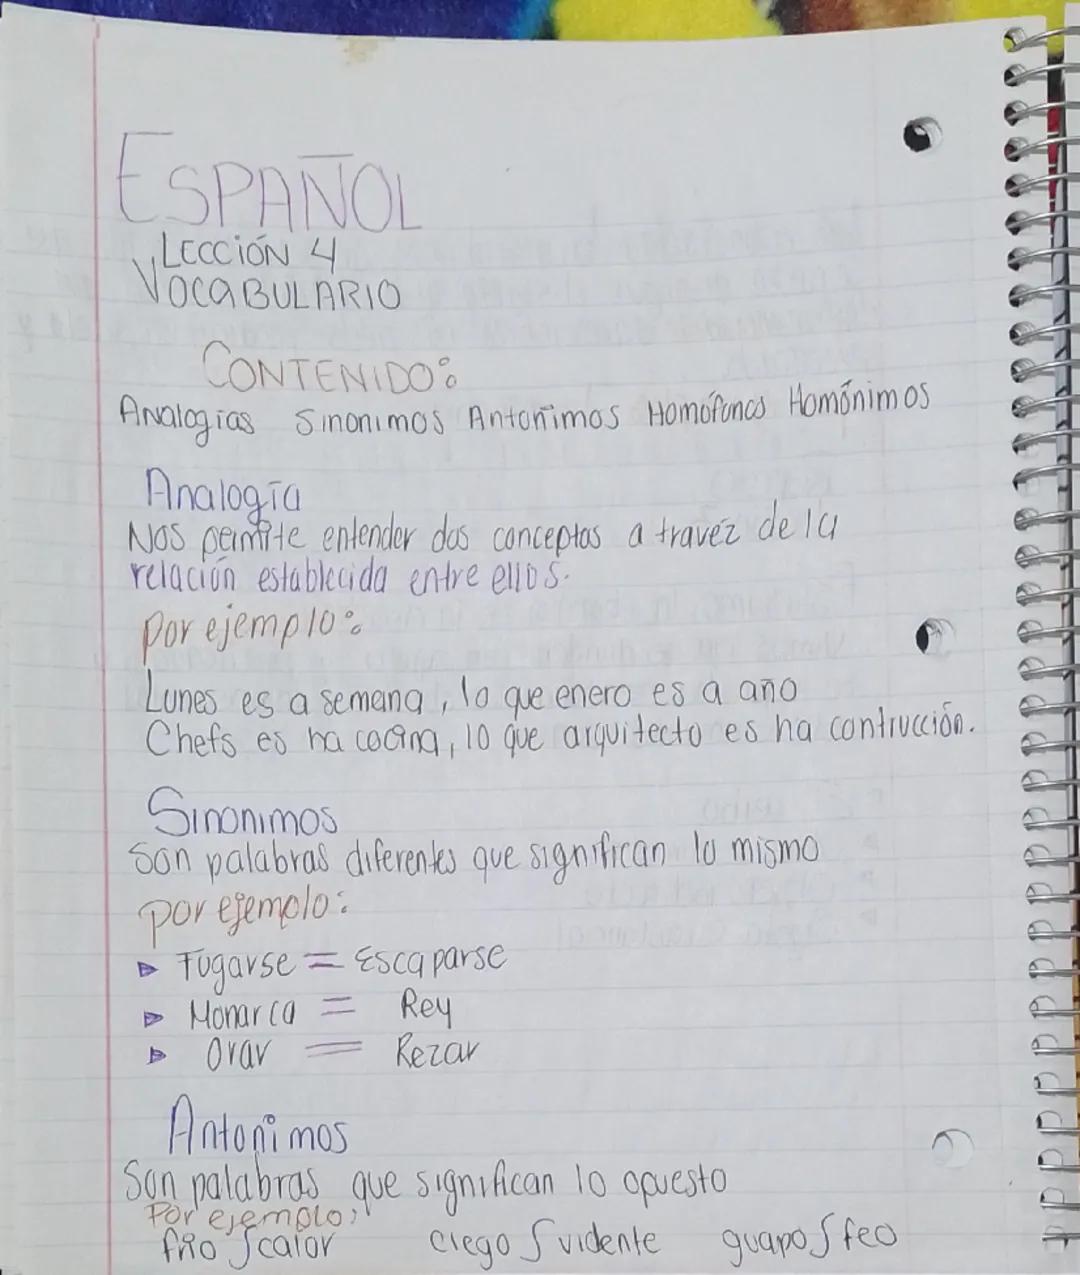 ESPAÑOL
LECCIÓN 4
VOCABULARIO
CONTENIDO:
Analogías Sinonimos Antonimos Homófonos Homónimos
Analogía
Nos permite entender dos conceptos a travéz de la
relación establecida entre ellos.
por ejemplo:
Lunes es a semana, lo que enero es a año
Chefs es ha cocina, lo que arquitecto es ha contrucción.
Sinonimos
Son palabras diferentes que significan lo mismo
por ejemplo:
▶ Fugarse = Escaparse
▶ Monarca = Rey
▶ Orar = Rezar
Antonimos
Son palabras que significan lo opuesto
Por ejemplo:
frio ∫ calor ciego ∫ vidente guapo ∫ feo